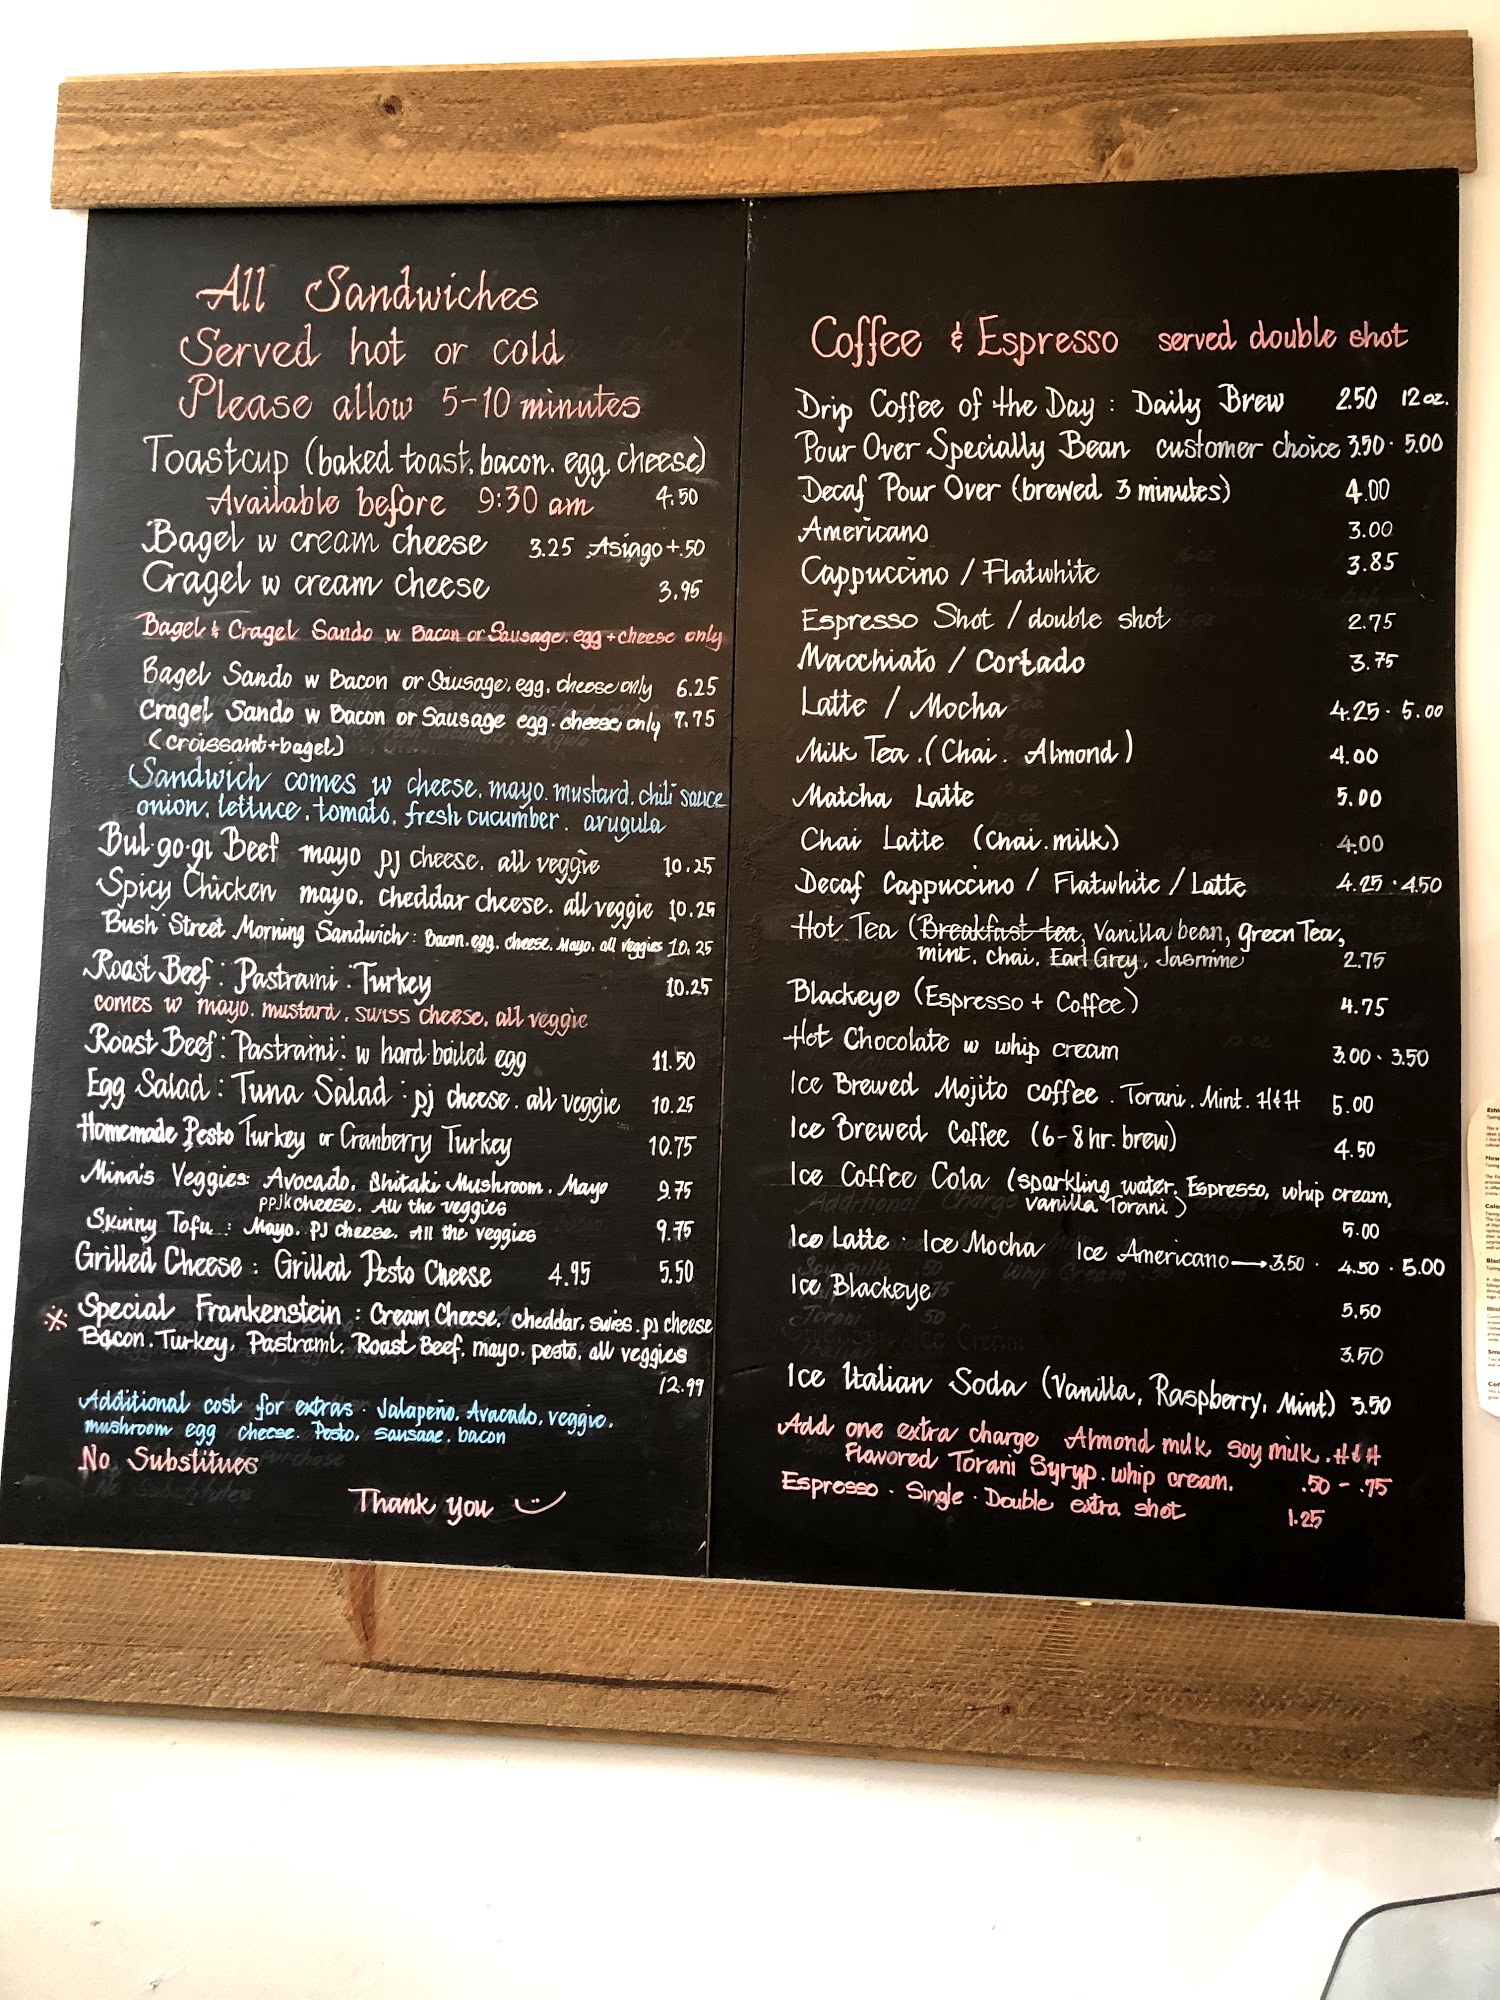 All Sandwiches
Served hot or cold
Please allow 5-10 minutes
Toastcup (baked toast. bacon. egg. cheese)
Available before 9:30 am 4.50
Bagel w cream cheese 3.25 Asiago +.50
Cragel w cream cheese 3.95
Bagel & Cragel Sando w Bacon or Sausage. egg + cheese only
Bagel Sando w Bacon or Sausage, egg, cheese only 6.25
Cragel Sando w Bacon or Sausage egg. cheese only 7.75
(croissant+bagel)
Sandwich comes w cheese. mayo. mustard. chili sauce
onion. lettuce. tomato. fresh cucumber. arugula
Bul·go·gi Beef mayo pj cheese. all veggie 10.25
Spicy Chicken mayo. cheddar cheese. all veggie 10.25
Bush Street Morning Sandwich: Bacon. egg. cheese. Mayo. all veggies 10.25
Roast Beef: Pastrami: Turkey 10.25
comes w mayo. mustard. swiss cheese. all veggie
Roast Beef: Pastrami: w hard·boiled egg 11.50
Egg Salad: Tuna Salad: pj cheese. all veggie 10.25
Homemade Pesto Turkey or Cranberry Turkey 10.75
Mina's Veggies: Avocado, Shitaki Mushroom. Mayo 9.75
ppjk cheese. All the veggies
Skinny Tofu: Mayo. PJ cheese. All the veggies 9.75
Grilled Cheese: Grilled Pesto Cheese 4.95 5.50
Special Frankenstein: Cream Cheese. cheddar. swiss. pj cheese
Bacon. Turkey. Pastrami. Roast Beef. mayo. pesto. all veggies
12.99
Additional cost for extras. Jalapeño. Avacado. veggie.
mushroom egg cheese. Pesto. sausage. bacon
No Substitues
Thank you
Coffee & Espresso served double shot
Drip Coffee of the Day: Daily Brew 2.50 12 oz.
Pour Over Specially Bean customer choice 3.50 · 5.00
Decaf Pour Over (brewed 3 minutes) 4.00
Americano 3.00
Cappuccino / Flatwhite 3.85
Espresso Shot / double shot 2.75
Macchiato / Cortado 3.75
Latte / Mocha 4.25 · 5.00
Milk Tea. (Chai. Almond) 4.00
Matcha Latte 5.00
Chai Latte (Chai. milk) 4.00
Decaf Cappuccino / Flatwhite / Latte 4.25 · 4.50
Hot Tea (Breakfast tea, Vanilla bean, green Tea,
mint. chai. Earl Grey. Jasmine 2.75
Blackeye (Espresso + Coffee) 4.75
Hot Chocolate w whip cream 3.00 · 3.50
Ice Brewed Mojito coffee. Torani. Mint. H&H 5.00
Ice Brewed Coffee (6-8 hr. brew) 4.50
Ice Coffee Cola (sparkling water, Espresso, whip cream,
vanilla Torani) 5.00
Ice Latte · Ice Mocha Ice Americano → 3.50 · 4.50 · 5.00
Ice Blackeye 5.50
3.50
Ice Italian Soda (Vanilla, Raspberry, Mint) 3.50
Add one extra charge Almond milk soy milk. H&H
Flavored Torani Syryp. whip cream. .50 - .75
Espresso. Single. Double extra shot 1.25